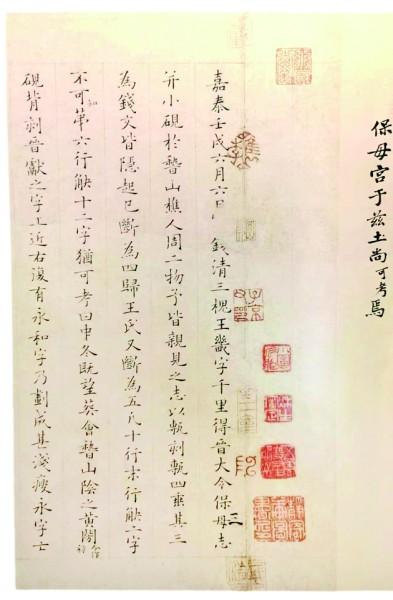 保母宮于茲土尚可考焉
嘉泰壬戌六月六日錢清三槐王畿字千里得晉大令保母志
并小硯於稽山樵人周二物予皆親見之志以甎刻甎四垂其三
為錢文皆隱起已斷為四歸王氏又斷為五凡十行末行缺二字
不可知弟六行缺十二字猶可考曰中冬既望葬會稽山陰之黃閍
硯背刻晉獻之字上近右復有永和字乃劃成甚淺瘦永字亡